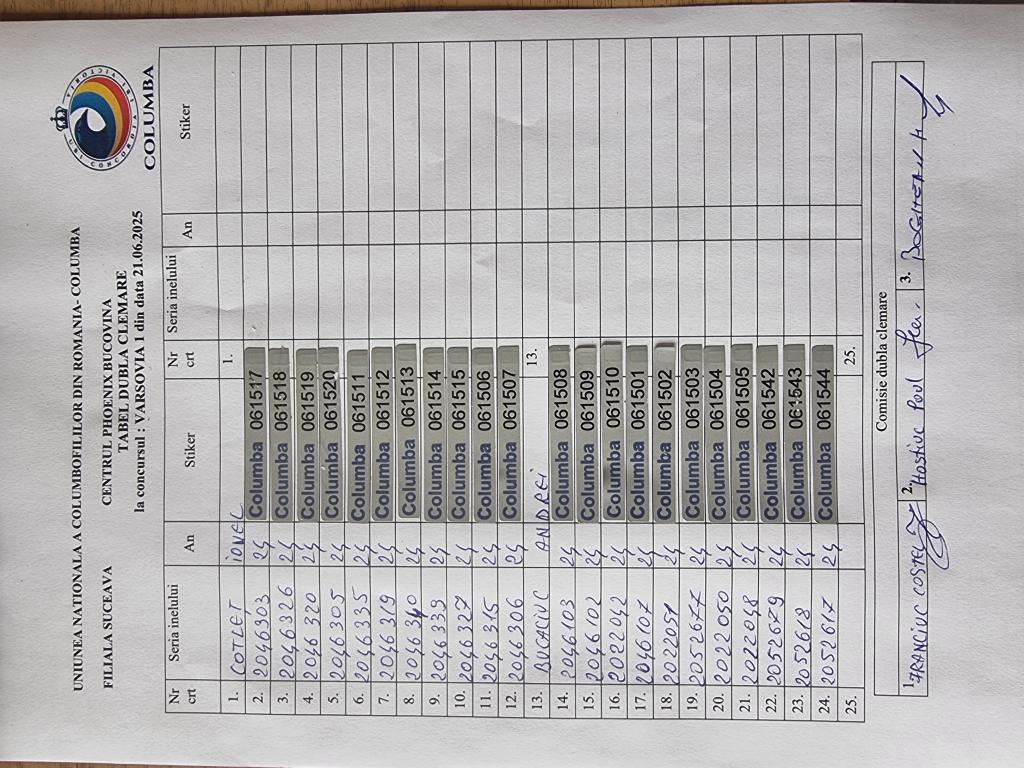 UNIUNEA NATIONALA A COLUMBOFILILOR DIN ROMANIA- COLUMBA
FILIALA SUCEAVA CENTRUL PHOENIX BUCOVINA
TABEL DUBLA CLEMARE
la concursul : VARSOVIA 1 din data 21.06.2025
UBI CONCORDIA IBI VICTORIA
COLUMBA
Nr crt Seria inelului An Stiker Nr crt Seria inelului An Stiker
1. COTLET IONEL 1.
2. 2046303 24 Columba 061517
3. 2046326 24 Columba 061518
4. 2046320 24 Columba 061519
5. 2046305 24 Columba 061520
6. 2046335 24 Columba 061511
7. 2046319 24 Columba 061512
8. 2046340 24 Columba 061513
9. 2046339 24 Columba 061514
10. 2046327 24 Columba 061515
11. 2046315 24 Columba 061506
12. 2046306 24 Columba 061507
13. BUCACIUC ANDREI 13.
14. 2046103 24 Columba 061508
15. 2046102 24 Columba 061509
16. 2022042 24 Columba 061510
17. 2046107 24 Columba 061501
18. 2022051 24 Columba 061502
19. 2052677 24 Columba 061503
20. 2022050 24 Columba 061504
21. 2022048 24 Columba 061505
22. 2052679 24 Columba 061542
23. 2052618 24 Columba 061543
24. 2052617 24 Columba 061544
25. 25.
Comisie dubla clemare
1. FRANCIUC COSTEL 2. Hostiuc Paul 3.